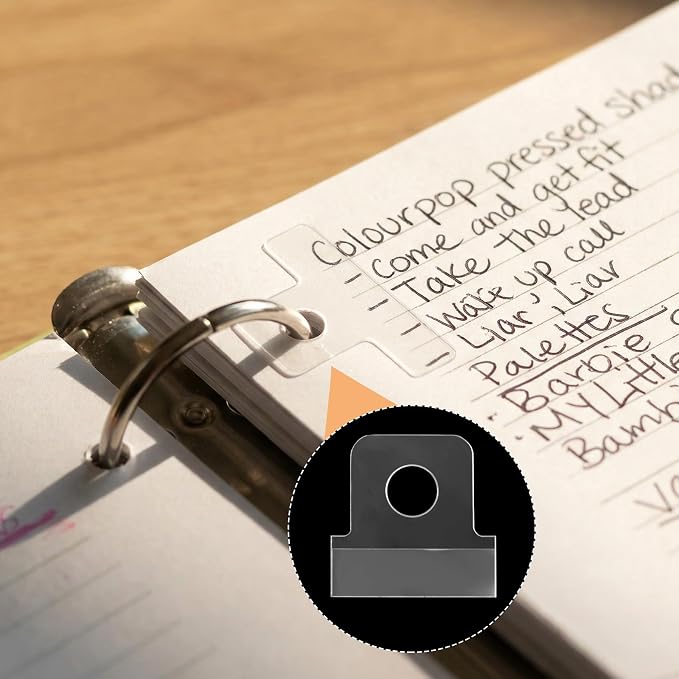 Colourpop pressed shad
- Come and get fit
- Take the lead
- Wake up call
- Liar, Liar
Palettes
· Barbie
· MY Little
Bambi